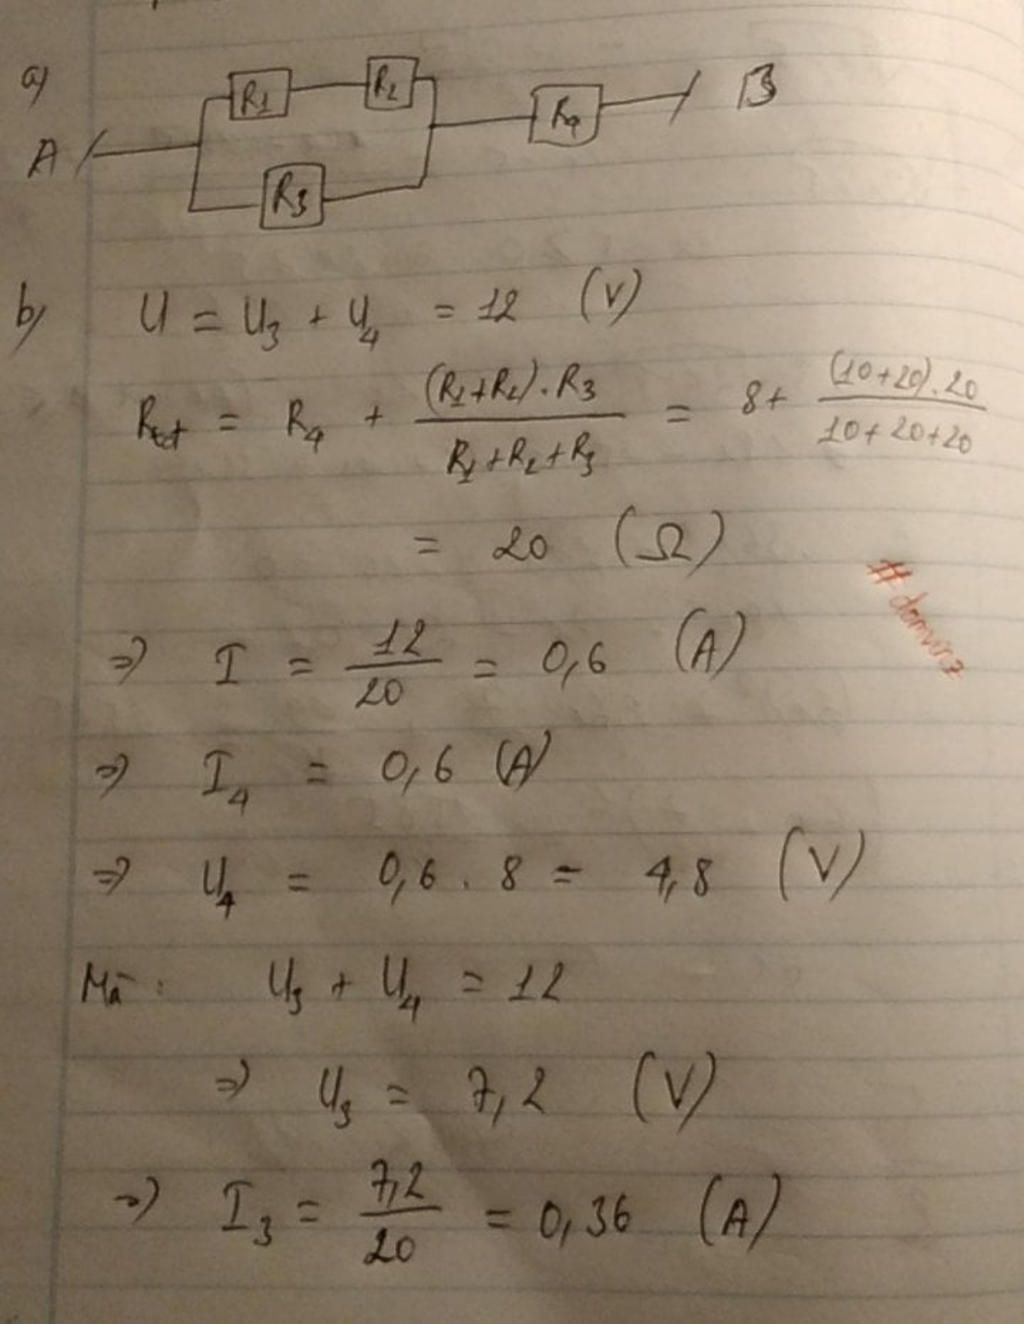 a)
R1 R2 R4 B
A R3
b) U = U3 + U4 = 12 (V)
Rtđ = R4 + (R1+R2).R3 / R1+R2+R3 = 8+ (10+20).20 / 10+20+20
= 20 (Ω)
#domvir3
=> I = 12/20 = 0,6 (A)
=> I4 = 0,6 (A)
=> U4 = 0,6 . 8 = 4,8 (V)
Mà : U3 + U4 = 12
=> U3 = 7,2 (V)
=> I3 = 7,2/20 = 0,36 (A)